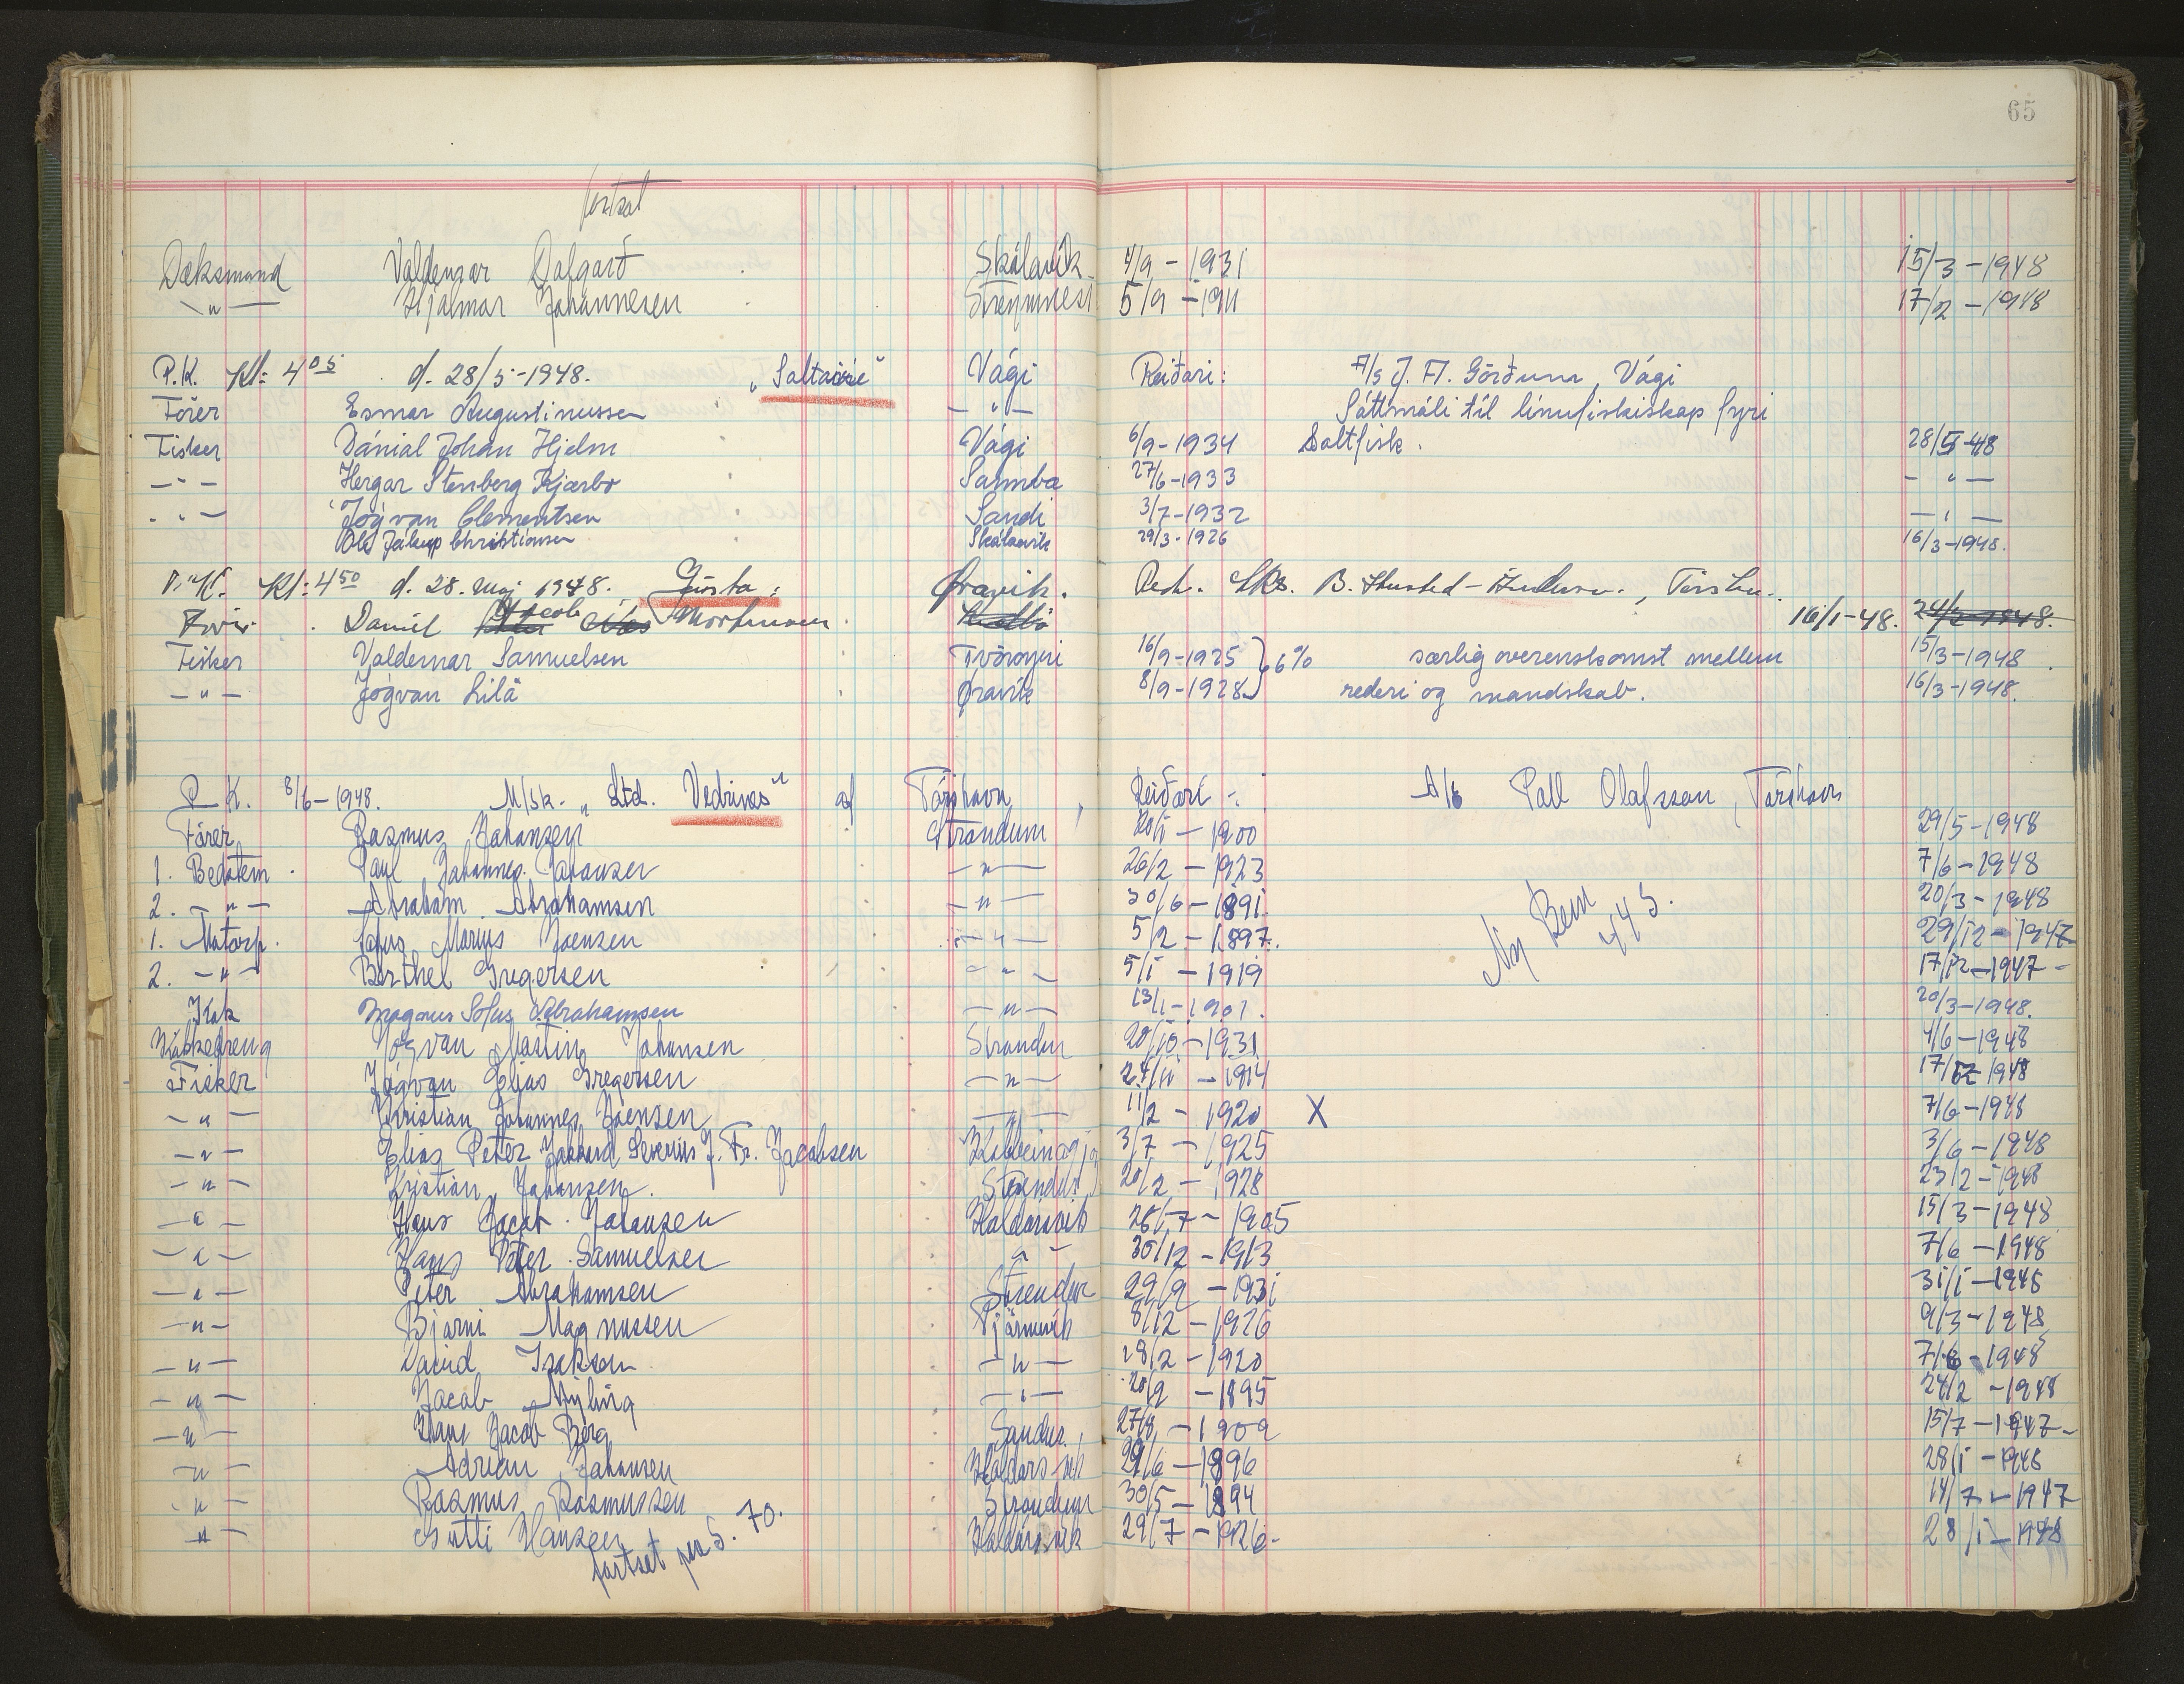 65
fortsat
Dæksmand Valdemar Dalgarð Skálavik 4/9 - 1931 15/3 - 1948
— " — Hjalmar Johannesen Streymnesi 5/9 - 1911 17/2 - 1948
P.K. Kl: 4 05 d. 28/5-1948. " " Vági Reiðari: A/s J. Fl. Görðum, Vági
Förer Esmar Augustinussen — " — Sáttmáli til línufiskiskap fyri
Fisker Dánial Johan Hjelm Vági 6/9-1934 Saltfisk. 28/5-48
— " — Hergar Stenberg Kjærbo Sumba 27/6-1933 — " —
— " — Jógvan Clementsen Sandi 3/7-1932 — " —
Ole Jákup Christiansen Skálavik 29/3-1926 16/3-1948.
P.K. Kl: 4 50 d. 28. maj 1948. Gusta: Øravik. Red. B. Husted-
Daniel Jacob Mortensen. 16/1-48. 24/2-1948.
Fisker Valdemar Samuelsen Tvöroyri 16/9-1925 } 6% særlig overenskomst mellem 15/3-1948
— " — Jógvan Lilá Øravik 8/9-1928 rederi og mandskab. 16/3-1948
P.K. 8/6-1948. M/sk. " Ltd. Vedrines" af Tórshavn, Reiðari: A/s Poll Olafsson, Tórshavn
Förer Rasmus Johansen Strandum 20/1-1900 29/5-1948
1. Bedstem. Paul Johannes Johansen — " — 26/2-1923 7/6-1948
2. — " — Abraham Abrahamsen — " — 30/6-1891. 20/3-1948
1. Motorp. Sofus Marius Joensen — " — 5/2-1897. 29/12-1947
2. — " — Berthel Gregersen — " — 5/1-1919 17/12-1947 -
Kok Magnus Sofus Abrahamsen — " — 13/1-1901. 20/3-1948.
Kokkedreng Jógvan Martin Johansen Strandur 20/10-1931 4/6-1948
Fisker Jógvan Elias Gregersen — " — 24/11-1914 17/12 1948
— " — Kristian Johannes Joensen — " — 11/2-1920 X 7/6-1948
— " — Elias Peter Severin J. Fr. Jacobsen 3/7-1925 3/6-1948
— " — Kristian Johansen. Strendur 20/2-1928 23/2-1948
— " — Hans Jacob Johansen Haldarsvik 26/7-1905 15/3-1948
— " — Hans Peter Samuelsen — " — 30/12-1913 7/6-1948
— " — Peter Abrahamsen Strendur 29/9-1931 31/1-1948
— " — Bjarni Magnussen Tjørnuvik 8/12-1926 9/3-1948
— " — David Isaksen — " — 18/2-1920 7/6-1948
— " — Jacob Nybing — " — 20/9-1895 24/2-1948
— " — Hans Jacob Berg Sandur. 27/8-1909 15/7-1947-
— " — Adrian Johansen Haldarsvik 29/6-1896 28/1-1948
— " — Rasmus Rasmussen Strandum 30/5-1894 14/7-1947
— " — Gutti Hansen Haldarsvik 29/7-1926- 28/1-1948
Ny Bem 445.
fortset paa S. 70.